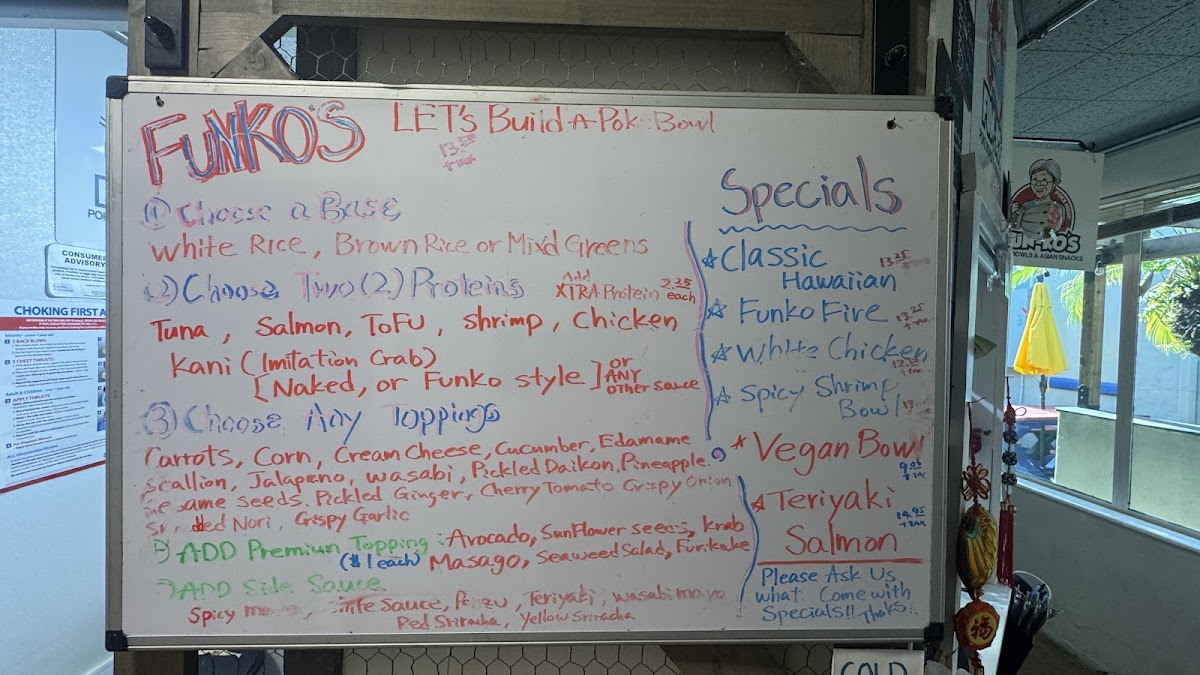 FUNKO'S
LET's Build-A-Pok Bowl
13.25
+TAX
(1) Choose a Base
White Rice, Brown Rice or Mixd Greens
(2) Choose Two (2) Proteins
Add
XTRA Protein
2.25
each
Tuna, Salmon, ToFu, shrimp, Chicken
Kani (Imitation Crab)
[Naked, or Funko style]
or
ANY
other sauce
(3) Choose Any Toppings
Carrots, Corn, Cream Cheese, Cucumber, Edamame
scallion, Jalapeno, wasabi, Pickled Daikon, Pineapple
Sesame seeds. Pickled Ginger, Cherry Tomato Crispy Onion
Nori, Crispy Garlic
ADD Premiun Topping : Avocado, SunFlower seeds, Krab
($1 each) Masago, Seaweed Salad, Furikake
ADD Side Sauce
Spicy Sauce, Ponzu, Teriyaki, wasabi mayo
Red Sriracha, Yellow Sriracha
Specials
Classic
Hawaiian
13.25
Funko Fire
13.25
+TAX
White Chicken
+TAX
Spicy Shrimp
Bowl
Vegan Bowl
+TAX
Teriyaki
Salmon
14.95
+TAX
Please Ask Us
what Come with
Specials!! Thaks
COLD
CONSUMER
ADVISORY
CHOKING FIRST A
5 BACK BLOWS
UN-KO'S
BOWLS & ASIAN SNACKS
福